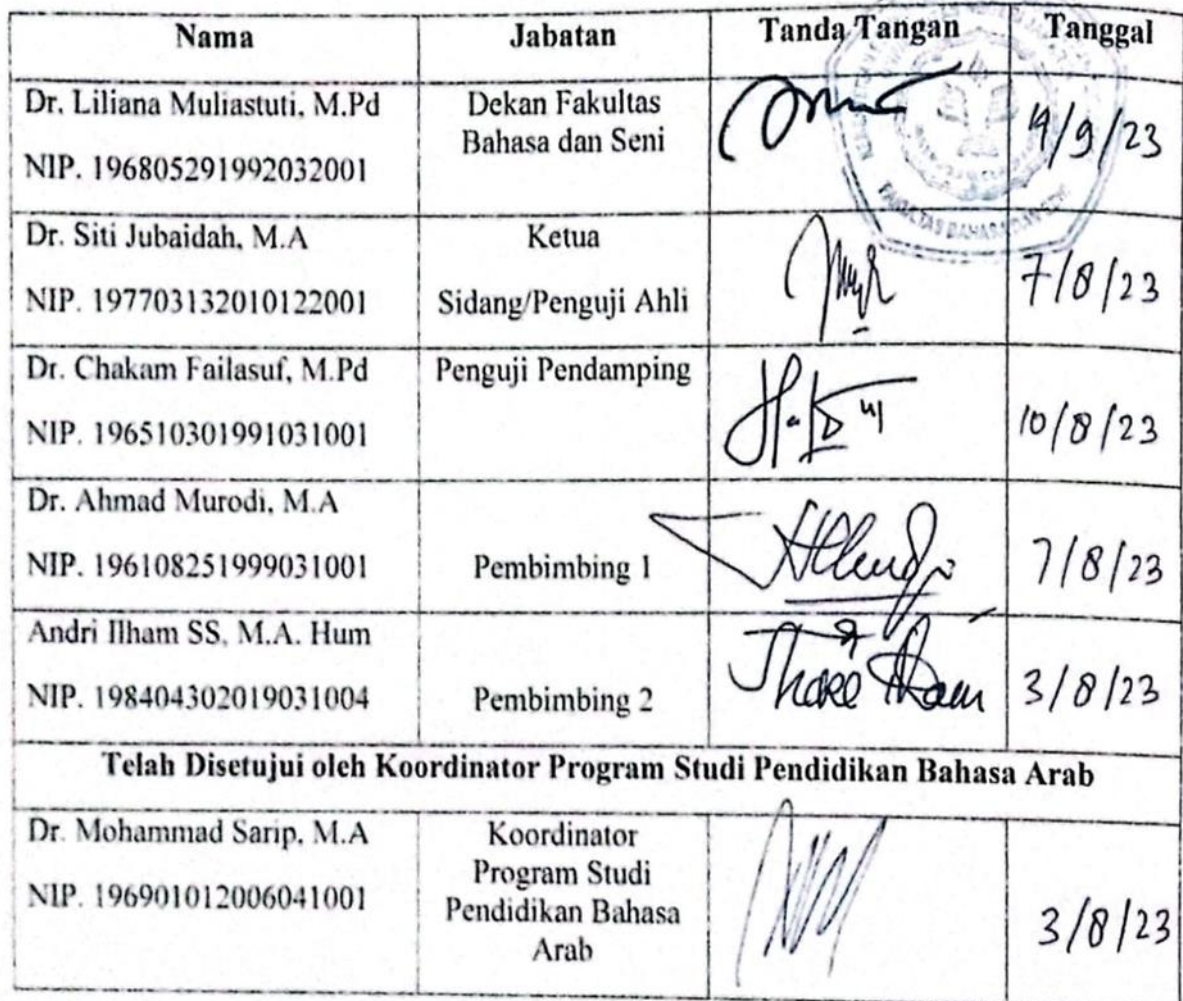 Nama Jabatan Tanda Tangan Tanggal
Dr. Liliana Muliastuti, M.Pd
NIP. 196805291992032001
Dekan Fakultas
Bahasa dan Seni
/9/23
FAKULTAS BAHASA DAN SENI
Dr. Siti Jubaidah, M.A
NIP. 197703132010122001
Ketua
Sidang/Penguji Ahli
7/8/23
Dr. Chakam Failasuf, M.Pd
NIP. 196510301991031001
Penguji Pendamping
10/8/23
Dr. Ahmad Murodi, M.A
NIP. 196108251999031001
Pembimbing 1
7/8/23
Andri Ilham SS, M.A. Hum
NIP. 198404302019031004
Pembimbing 2
3/8/23
Telah Disetujui oleh Koordinator Program Studi Pendidikan Bahasa Arab
Dr. Mohammad Sarip, M.A
NIP. 196901012006041001
Koordinator
Program Studi
Pendidikan Bahasa
Arab
3/8/23